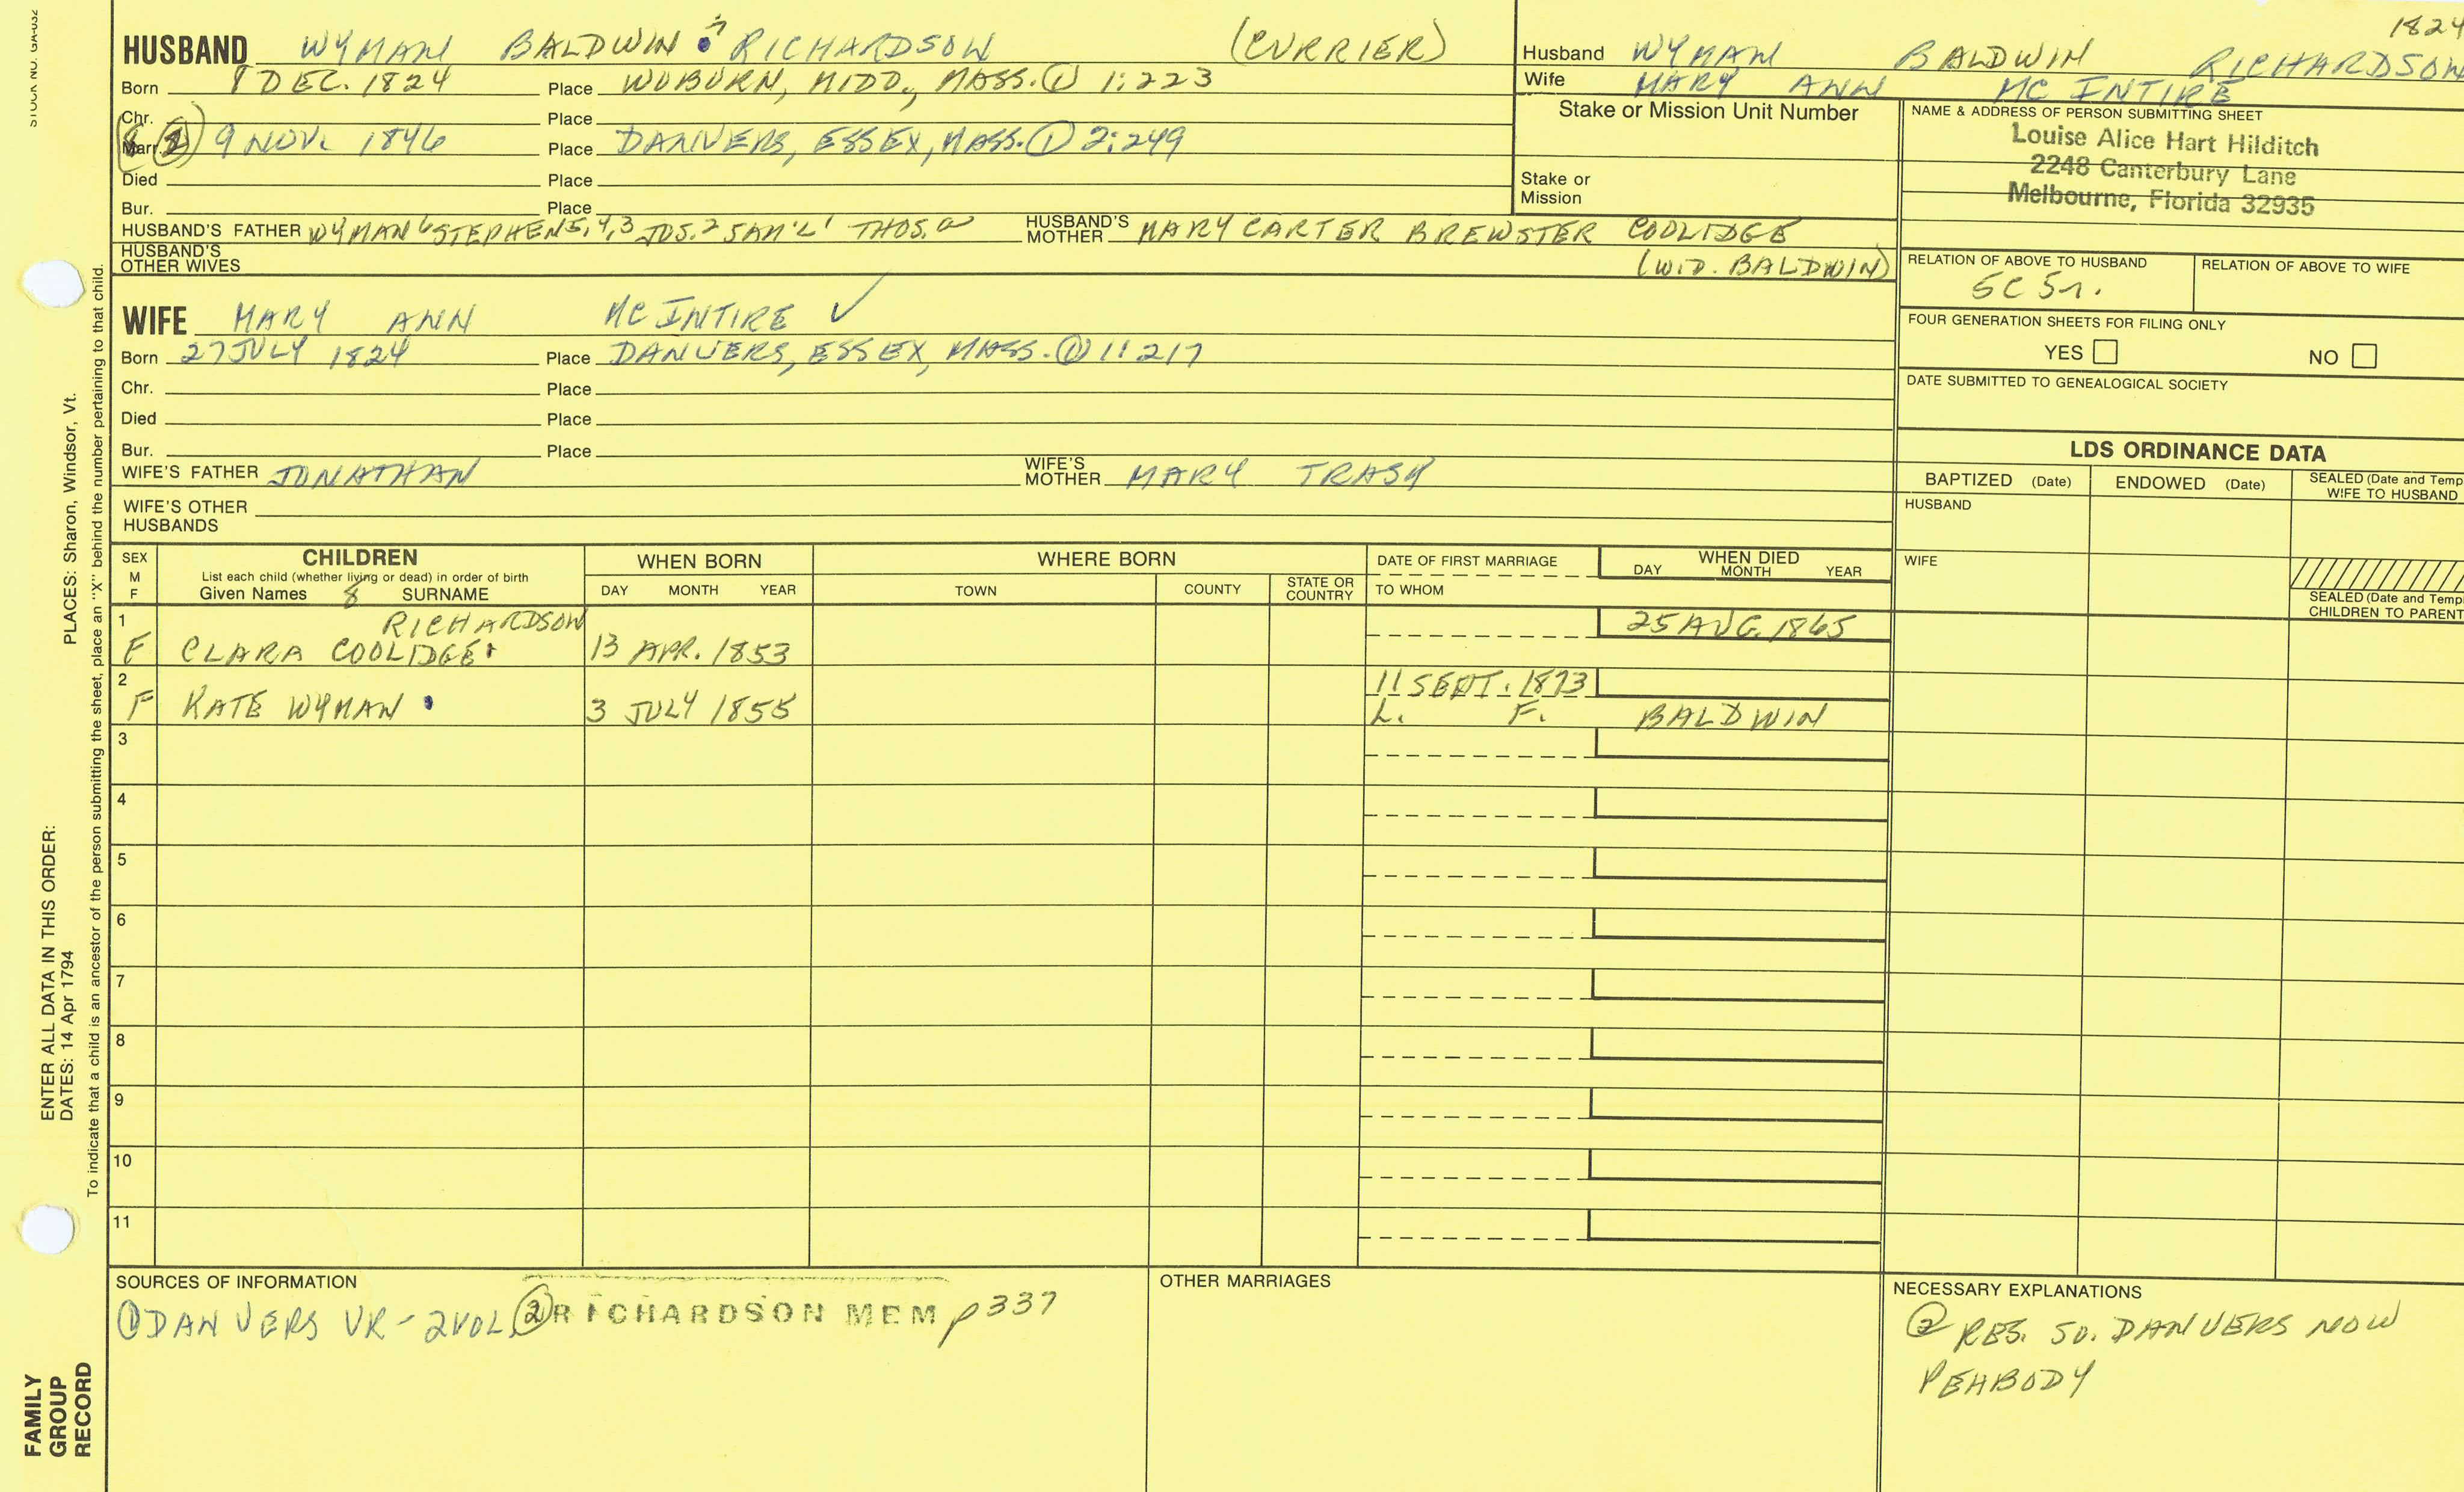 STOCK NO. GA-032
1824
HUSBAND WYMAN BALDWIN 7 RICHARDSON (CURRIER)
Born 8 DEC. 1824 Place WOBURN, MIDD., MASS. ① 1:223
Chr. Place
Marr. ② 9 NOV. 1846 Place DANVERS, ESSEX, MASS. ① 2:249
Died Place
Bur. Place
HUSBAND'S FATHER WYMAN 6 STEPHEN 5,4,3 JOS. 2 SAM'L 1 THOS. a HUSBAND'S MOTHER MARY CARTER BREWSTER COOLIDGE
HUSBAND'S OTHER WIVES (WID. BALDWIN)
WIFE MARY ANN MC INTIRE ✓
Born 27 JULY 1824 Place DANVERS, ESSEX, MASS. ① 1:217
Chr. Place
Died Place
Bur. Place
WIFE'S FATHER JONATHAN WIFE'S MOTHER MARY TRASK
WIFE'S OTHER HUSBANDS
Husband WYMAN BALDWIN RICHARDSON
Wife MARY ANN MC INTIRE
Stake or Mission Unit Number
Stake or
Mission
NAME & ADDRESS OF PERSON SUBMITTING SHEET
Louise Alice Hart Hilditch
2248 Canterbury Lane
Melbourne, Florida 32935
RELATION OF ABOVE TO HUSBAND RELATION OF ABOVE TO WIFE
5C 5r.
FOUR GENERATION SHEETS FOR FILING ONLY
YES NO
DATE SUBMITTED TO GENEALOGICAL SOCIETY
LDS ORDINANCE DATA
BAPTIZED (Date) ENDOWED (Date) SEALED (Date and Temp
WIFE TO HUSBAND
HUSBAND
WIFE
SEALED (Date and Temp
CHILDREN TO PARENT
SEX M F CHILDREN WHEN BORN WHERE BORN DATE OF FIRST MARRIAGE WHEN DIED
List each child (whether living or dead) in order of birth
Given Names 8 SURNAME DAY MONTH YEAR TOWN COUNTY STATE OR COUNTRY TO WHOM DAY MONTH YEAR
1 RICHARDSON 25 AUG. 1865
F CLARA COOLIDGE 13 APR. 1853
2 11 SEPT. 1873
F KATE WYMAN 3 JULY 1855 L. F. BALDWIN
3
4
5
6
7
8
9
10
11
SOURCES OF INFORMATION
① DANVERS VR - 2 VOL. ② RICHARDSON MEM p 337
OTHER MARRIAGES
NECESSARY EXPLANATIONS
② RES. SO. DANVERS NOW
PEABODY
PLACES: Sharon, Windsor, Vt.
ENTER ALL DATA IN THIS ORDER:
DATES: 14 Apr 1794
To indicate that a child is an ancestor of the person submitting the sheet, place an "X" behind the number pertaining to that child.
FAMILY
GROUP
RECORD